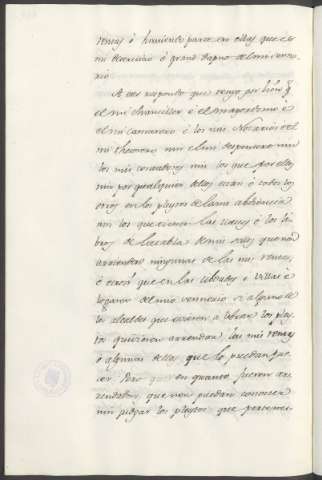 rentas é hauiente parte en ellas que es
mi deservicio é grand dapno de lo mi serui-
cio.
A esto respondo que tengo por bien q̃
el mi chanciller é el mayordomo é
el mi camarero é los mis Notarios e el
mi thesorero nin el mi despensero nin
los mis contadores nin los que por ellos
nin por qualquier dellos estan é todos los
otros en los pleytos de la mi abdiencia
nin los que tienen las cuentas é los li-
bros de la tabla de mis rentas que non
arrienden ningunas de las mis rentas,
é otrosi que en las cibdades é villas é
logares del mio sennorio si algunos de
los alcaldes que ovieren á librar los pley-
tos quisieren arrendar las mis rentas
o algunas dellas que lo puedan fa-
cer. Pero que en quanto fueren arren-
dadores, que non puedan conoscer
nin judgar los pleytos que pertenes-